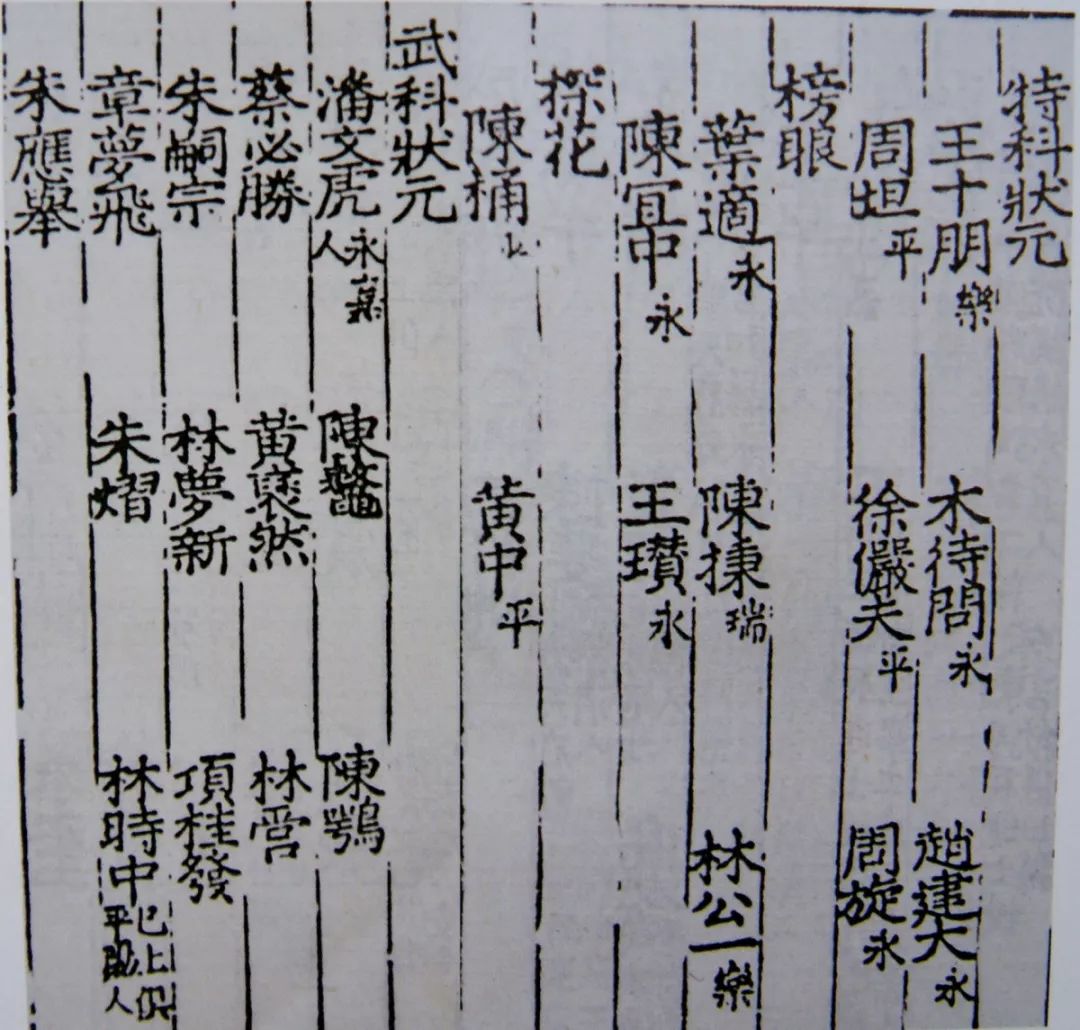 特科狀元
王十朋樂 木待問永 趙建大永
周坦平 徐儼夫平 周旋永
榜眼
葉適永 陳㨂瑞 林公一樂
陳宜中永 王瓚永
探花
陳桶 黃中平
武科狀元
潘文虎永嘉人 陳鰲 陳鶚
蔡必勝 黃裒然 林
朱嗣宗 林夢新 項桂發
章夢飛 朱熠 林時中已上俱平陽人
朱應舉